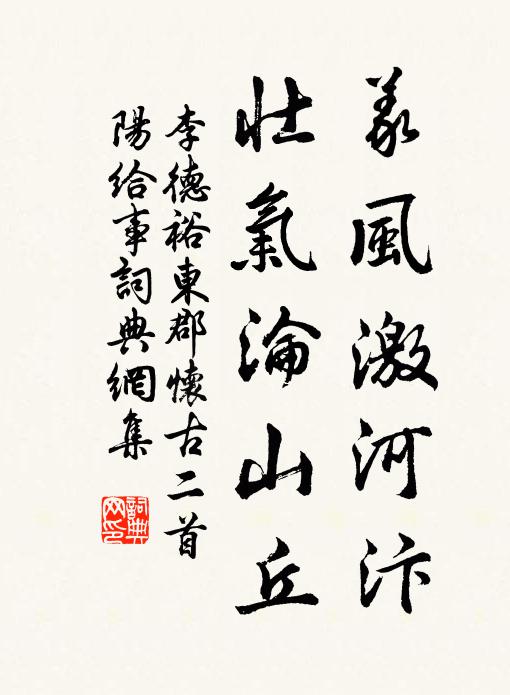 義風激河汴
壯氣淪山丘
李德裕東郡懷古二首
陽給事詞典網集
詞典
网印